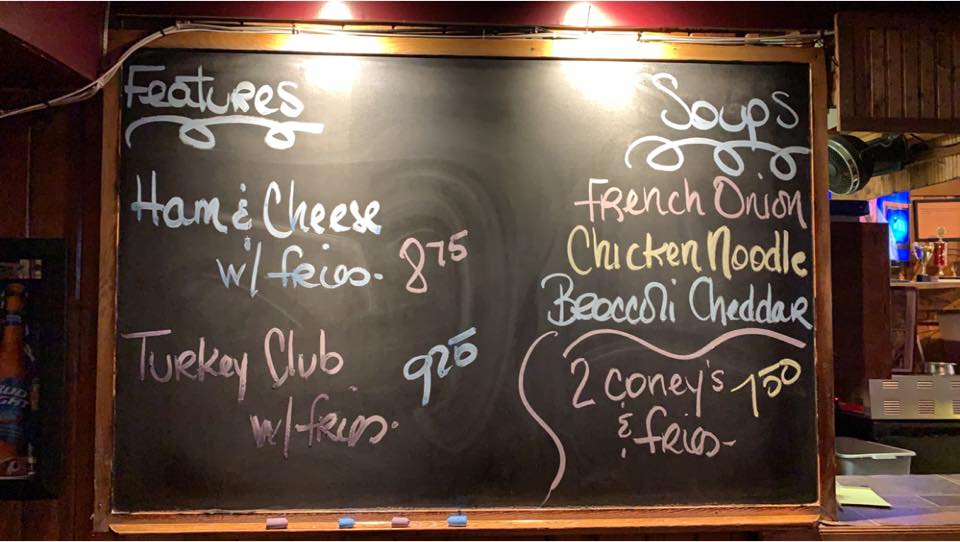 Features
Ham & Cheese
w/ fries. 875
Turkey Club
w/ fries.
Soups
French Onion
Chicken Noodle
Broccoli Cheddar
2 coney's 750
& fries
BUD
LIGHT